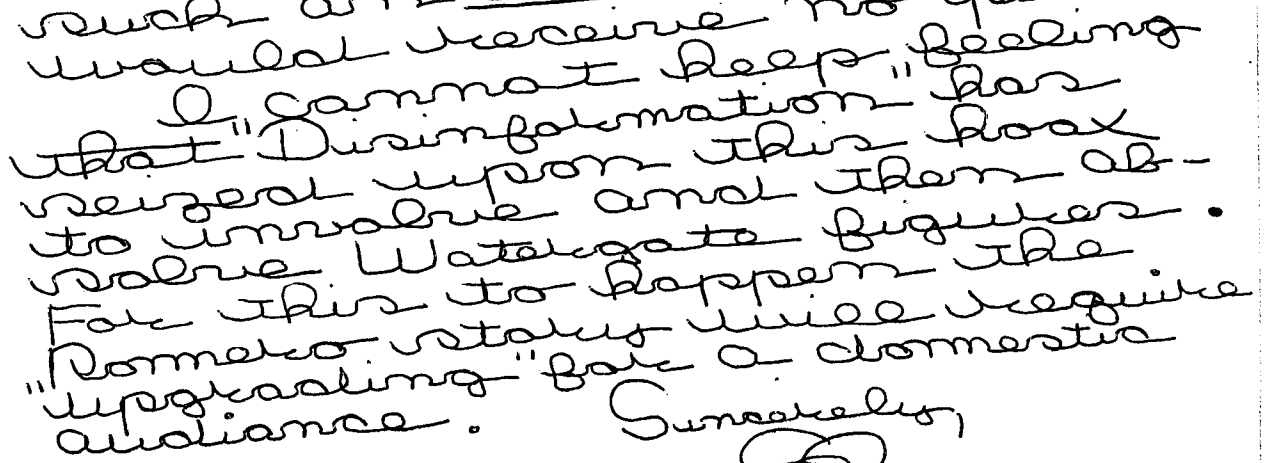 such
would receive no
I cannot keep feeling
that "Disinformation" has
seized upon this hoax
to involve and then ab-
solve Watergate figures.
For this to happen the
Romero story will require
"upgrading" for a domestic
audiance. Sincerely,